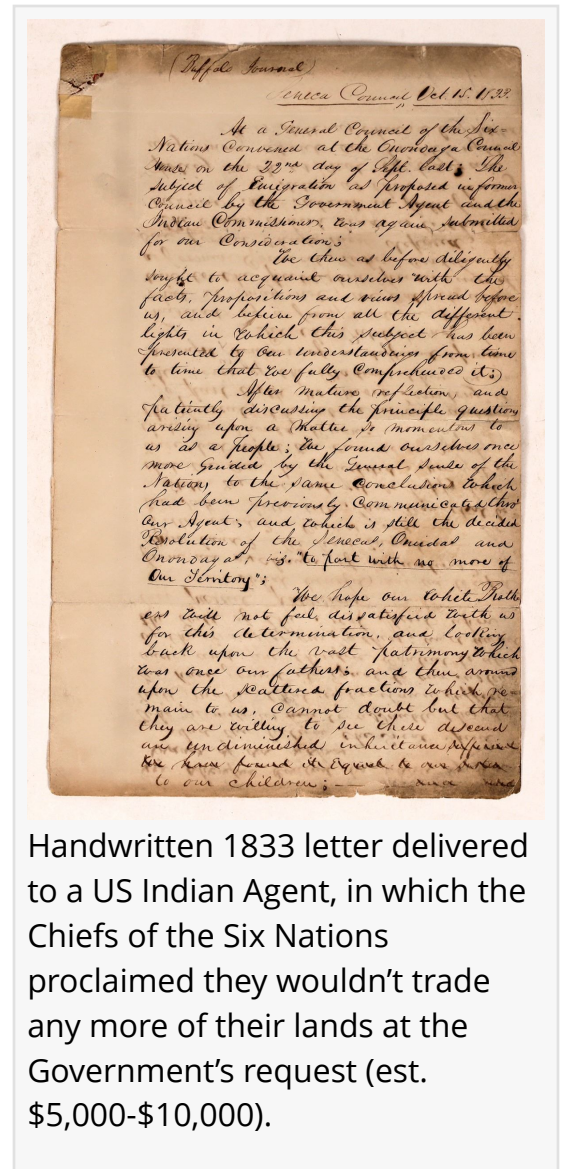 (Buffalo Journal)
Seneca Council Oct. 15. 1833.
At a General Council of the Six-
Nations Convened at the Onondaga Council
House on the 22nd day of Sept. last; The
subject of Emigration as proposed in former
Council by the Government Agent and the
Indian Commissioner, was again submitted
for our Consideration;
We then as before diligently
sought to acquaint ourselves with the
facts, propositions and views spread before
us, and believe from all the different
lights in which this subject has been
presented to our understandings from time
to time that we fully Comprehended it;
After mature reflection, and
patiently discussing the principle questions
arising upon a matter so momentous to
us as a people; We found ourselves once
more guided by the General sense of the
Nations to the same conclusion which
had been previously Communicated thro'
our Agent; and which is still the decided
Resolution of the Senecas, Oneidas and
Onondagas, viz. "to part with no more of
Our Territory";
We hope our white Broth
ers will not feel dissatisfied with us
for this determination, and looking
back upon the vast patrimony which
was once our fathers; and then around
upon the scattered fractions which re-
main to us, Cannot doubt but that
they are willing to see these descend
an undiminished inheritance
we have found it Equal to our
to our children;
Handwritten 1833 letter delivered
to a US Indian Agent, in which the
Chiefs of the Six Nations
proclaimed they wouldn't trade
any more of their lands at the
Government's request (est.
$5,000-$10,000).